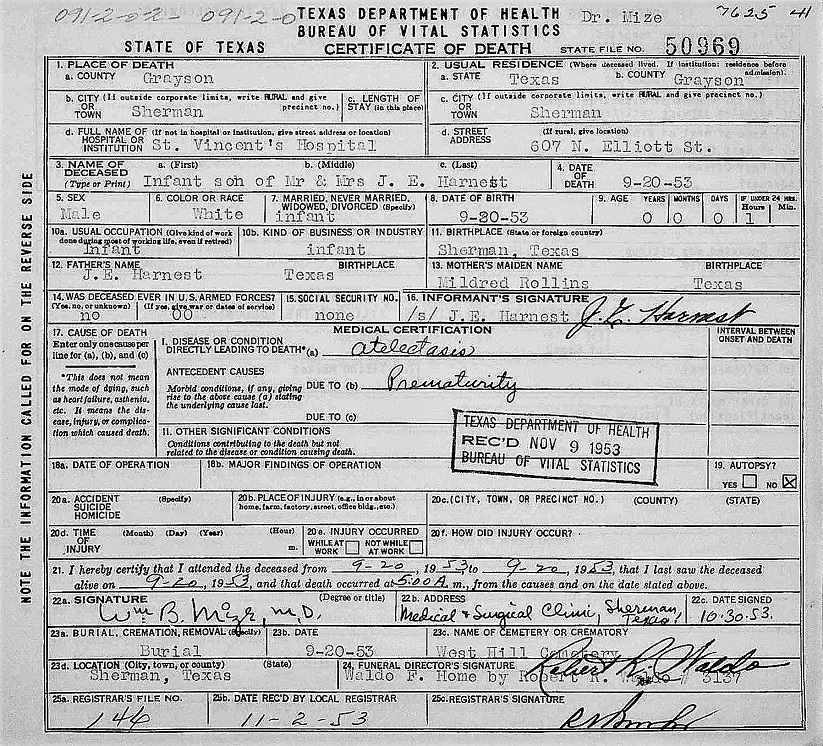 091-2-02-2 - 091-2-0 TEXAS DEPARTMENT OF HEALTH Dr. Mize 7625 41
BUREAU OF VITAL STATISTICS
STATE OF TEXAS CERTIFICATE OF DEATH STATE FILE NO. 50969
1. PLACE OF DEATH
a. COUNTY Grayson
2. USUAL RESIDENCE (Where deceased lived. If institution: residence before admission).
a. STATE Texas b. COUNTY Grayson
b. CITY (If outside corporate limits, write RURAL and give precinct no.)
OR TOWN Sherman
c. LENGTH OF STAY (in this place)
c. CITY (If outside corporate limits, write RURAL and give precinct no.)
OR TOWN Sherman
d. FULL NAME OF (If not in hospital or institution, give street address or location)
HOSPITAL OR INSTITUTION St. Vincent's Hospital
d. STREET ADDRESS (If rural, give location)
607 N. Elliott St.
3. NAME OF DECEASED (Type or Print) a. (First) b. (Middle) c. (Last)
Infant son of Mr & Mrs J. E. Harnest
4. DATE OF DEATH 9-20-53
5. SEX Male
6. COLOR OR RACE White
7. MARRIED, NEVER MARRIED, WIDOWED, DIVORCED (Specify) infant
8. DATE OF BIRTH 9-20-53
9. AGE YEARS MONTHS DAYS IF UNDER 24 HRS. Hours Min.
0 0 0 1
10a. USUAL OCCUPATION (Give kind of work done during most of working life, even if retired) Infant
10b. KIND OF BUSINESS OR INDUSTRY infant
11. BIRTHPLACE (State or foreign country)
Sherman, Texas
12. FATHER'S NAME BIRTHPLACE
J.E. Harnest Texas
13. MOTHER'S MAIDEN NAME BIRTHPLACE
Mildred Rollins Texas
14. WAS DECEASED EVER IN U.S. ARMED FORCES?
(Yes, no, or unknown) (If yes, give war or dates of service)
no 00
15. SOCIAL SECURITY NO.
none
16. INFORMANT'S SIGNATURE
/s/ J.E. Harnest J. E. Harnest
17. CAUSE OF DEATH
Enter only one cause per line for (a), (b), and (c)
*This does not mean the mode of dying, such as heart failure, asthenia, etc. It means the disease, injury, or complication which caused death.
MEDICAL CERTIFICATION
INTERVAL BETWEEN ONSET AND DEATH
I. DISEASE OR CONDITION DIRECTLY LEADING TO DEATH* (a) atelectasis
ANTECEDENT CAUSES
Morbid conditions, if any, giving rise to the above cause (a) stating the underlying cause last.
DUE TO (b) Prematurity
DUE TO (c)
11. OTHER SIGNIFICANT CONDITIONS
Conditions contributing to the death but not related to the disease or condition causing death.
TEXAS DEPARTMENT OF HEALTH
REC'D NOV 9 1953
BUREAU OF VITAL STATISTICS
18a. DATE OF OPERATION
18b. MAJOR FINDINGS OF OPERATION
19. AUTOPSY?
YES NO X
20a. ACCIDENT SUICIDE HOMICIDE (Specify)
20b. PLACE OF INJURY (e.g., in or about home, farm, factory, street, office bldg., etc.)
20c. (CITY, TOWN, OR PRECINCT NO.) (COUNTY) (STATE)
20d. TIME OF INJURY (Month) (Day) (Year) (Hour) m.
20e. INJURY OCCURRED
WHILE AT WORK NOT WHILE AT WORK
20f. HOW DID INJURY OCCUR?
21. I hereby certify that I attended the deceased from 9-20, 1953 to 9-20, 1953, that I last saw the deceased
alive on 9-20, 1953, and that death occurred at 5:00 A m., from the causes and on the date stated above.
22a. SIGNATURE (Degree or title)
Wm B. Mize, M.D.
22b. ADDRESS
Medical & Surgical Clinic, Sherman, Texas
22c. DATE SIGNED
10.30.53.
23a. BURIAL, CREMATION, REMOVAL (Specify)
Burial
23b. DATE
9-20-53
23c. NAME OF CEMETERY OR CREMATORY
West Hill Cemetery
23d. LOCATION (City, town, or county) (State)
Sherman, Texas
24. FUNERAL DIRECTOR'S SIGNATURE Robert R. Waldo
Waldo F. Home by Robert R. Waldo # 3137
25a. REGISTRAR'S FILE NO.
144
25b. DATE REC'D BY LOCAL REGISTRAR
11-2-53
25c. REGISTRAR'S SIGNATURE
NOTE THE INFORMATION CALLED FOR ON THE REVERSE SIDE